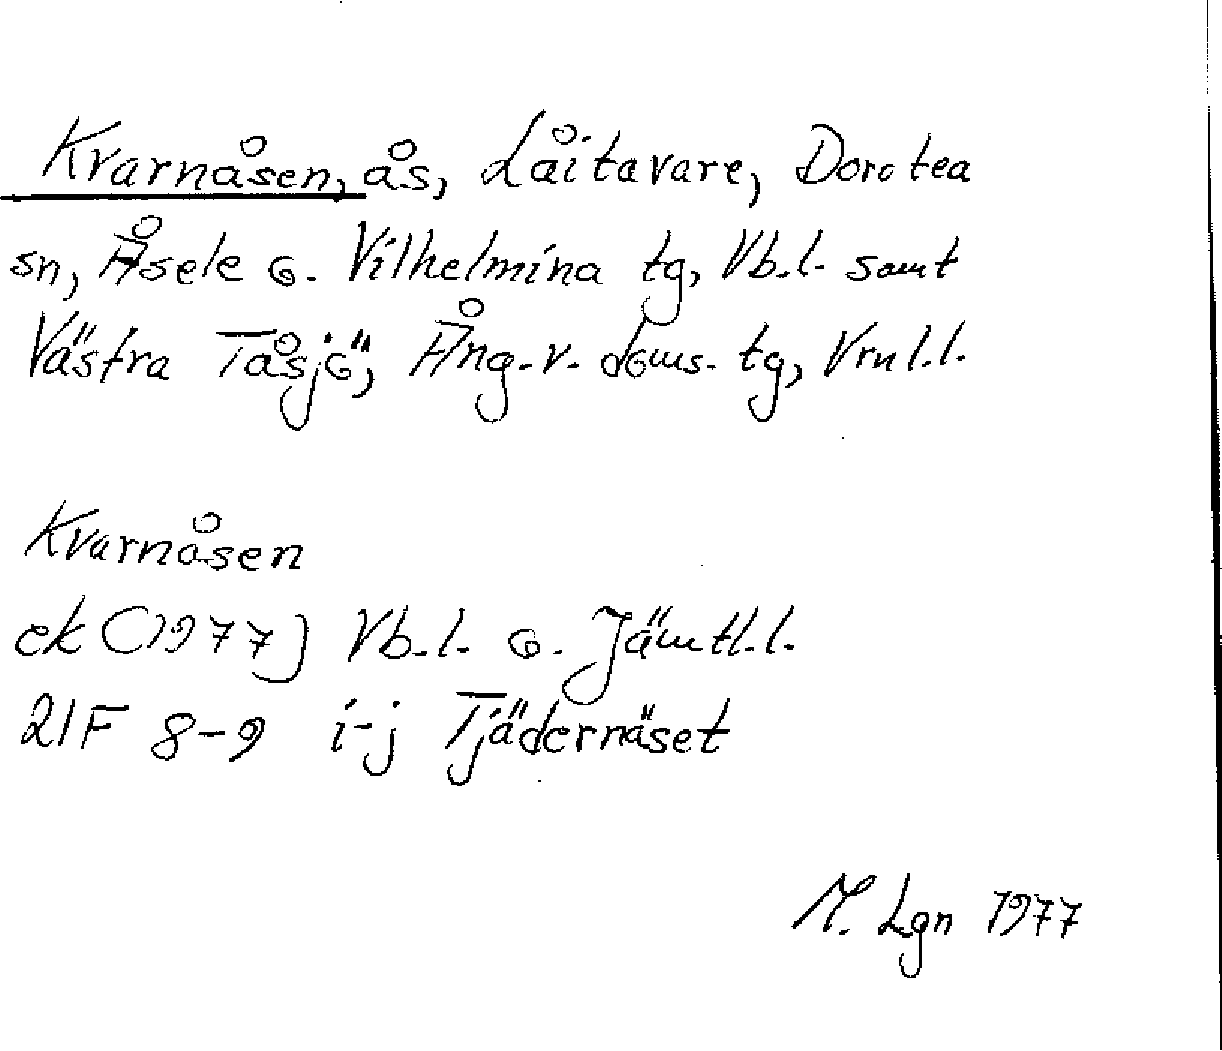 Kvarnåsen, ås, Låitavare, Dorotea
sn, Åsele o. Vilhelmina tg, Vb.l. samt
Västra Tåsjö, Ång. v. doms. tg, Vrnl.l.
Kvarnåsen
ek (1977) Vb.l. o. Jämtl.l.
21F 8-9 i-j Tjädernäset
M. Lgn 1977